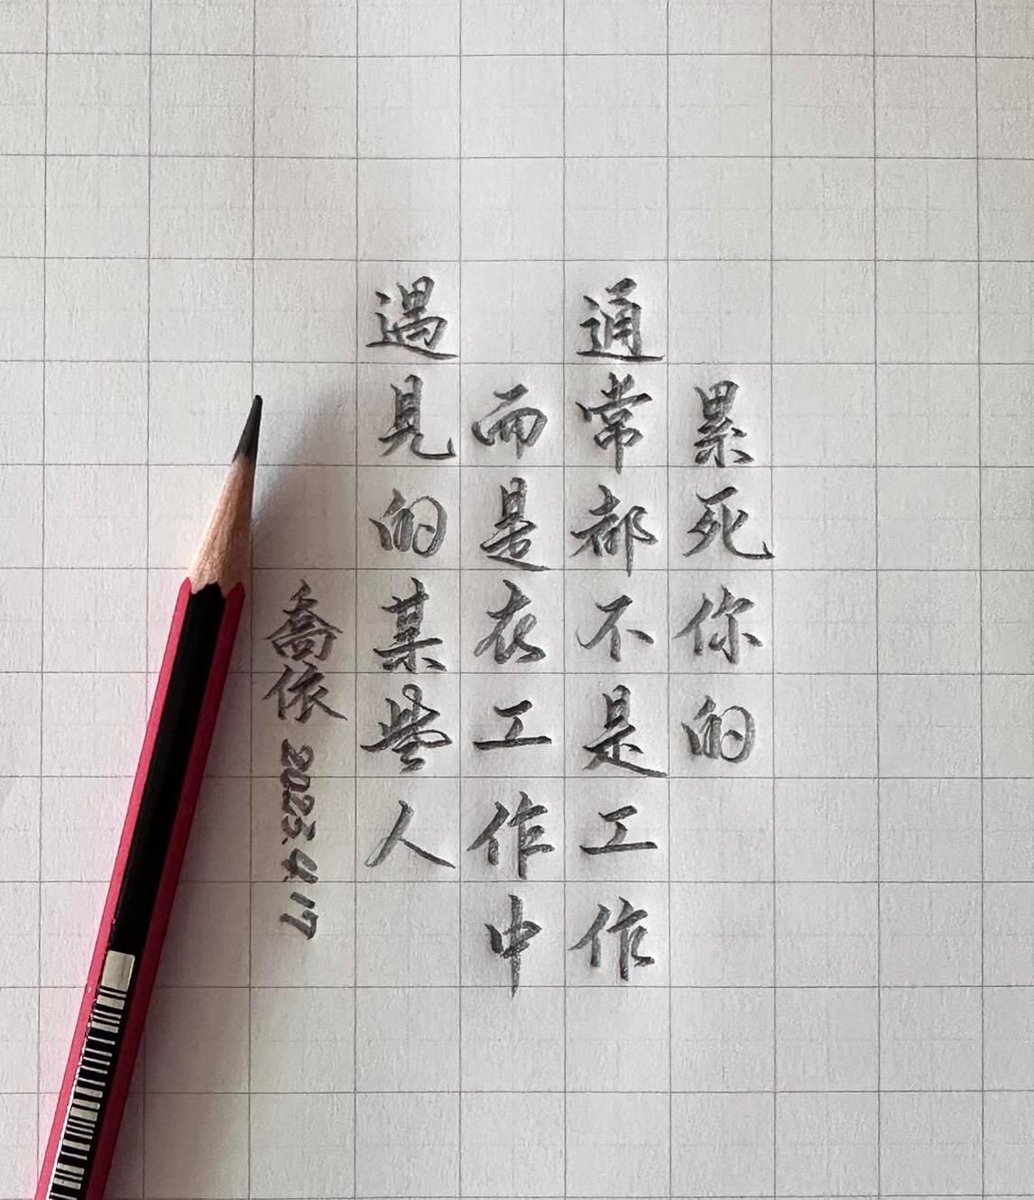 累死你的
通常都不是工作
而是在工作中
遇見的某些人
喬依 2025.4.17